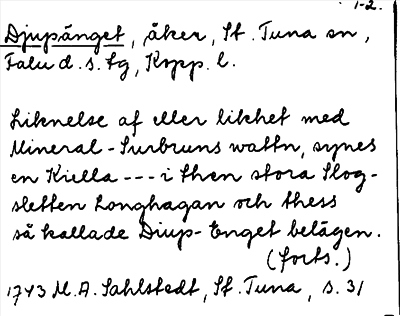 1-2.
Djupänget, åker, St. Tuna sn,
Falu d. s. tg, Kopp. l.
Liknelse af eller likhet med
Mineral-Surbruns wattn, synes
en Kiella --- i then stora Slog-
sletten Longhagan och thess
så kallade Diup-Enget belägen.
(forts.)
1743 M.A. Sahlstedt, St. Tuna, s. 31